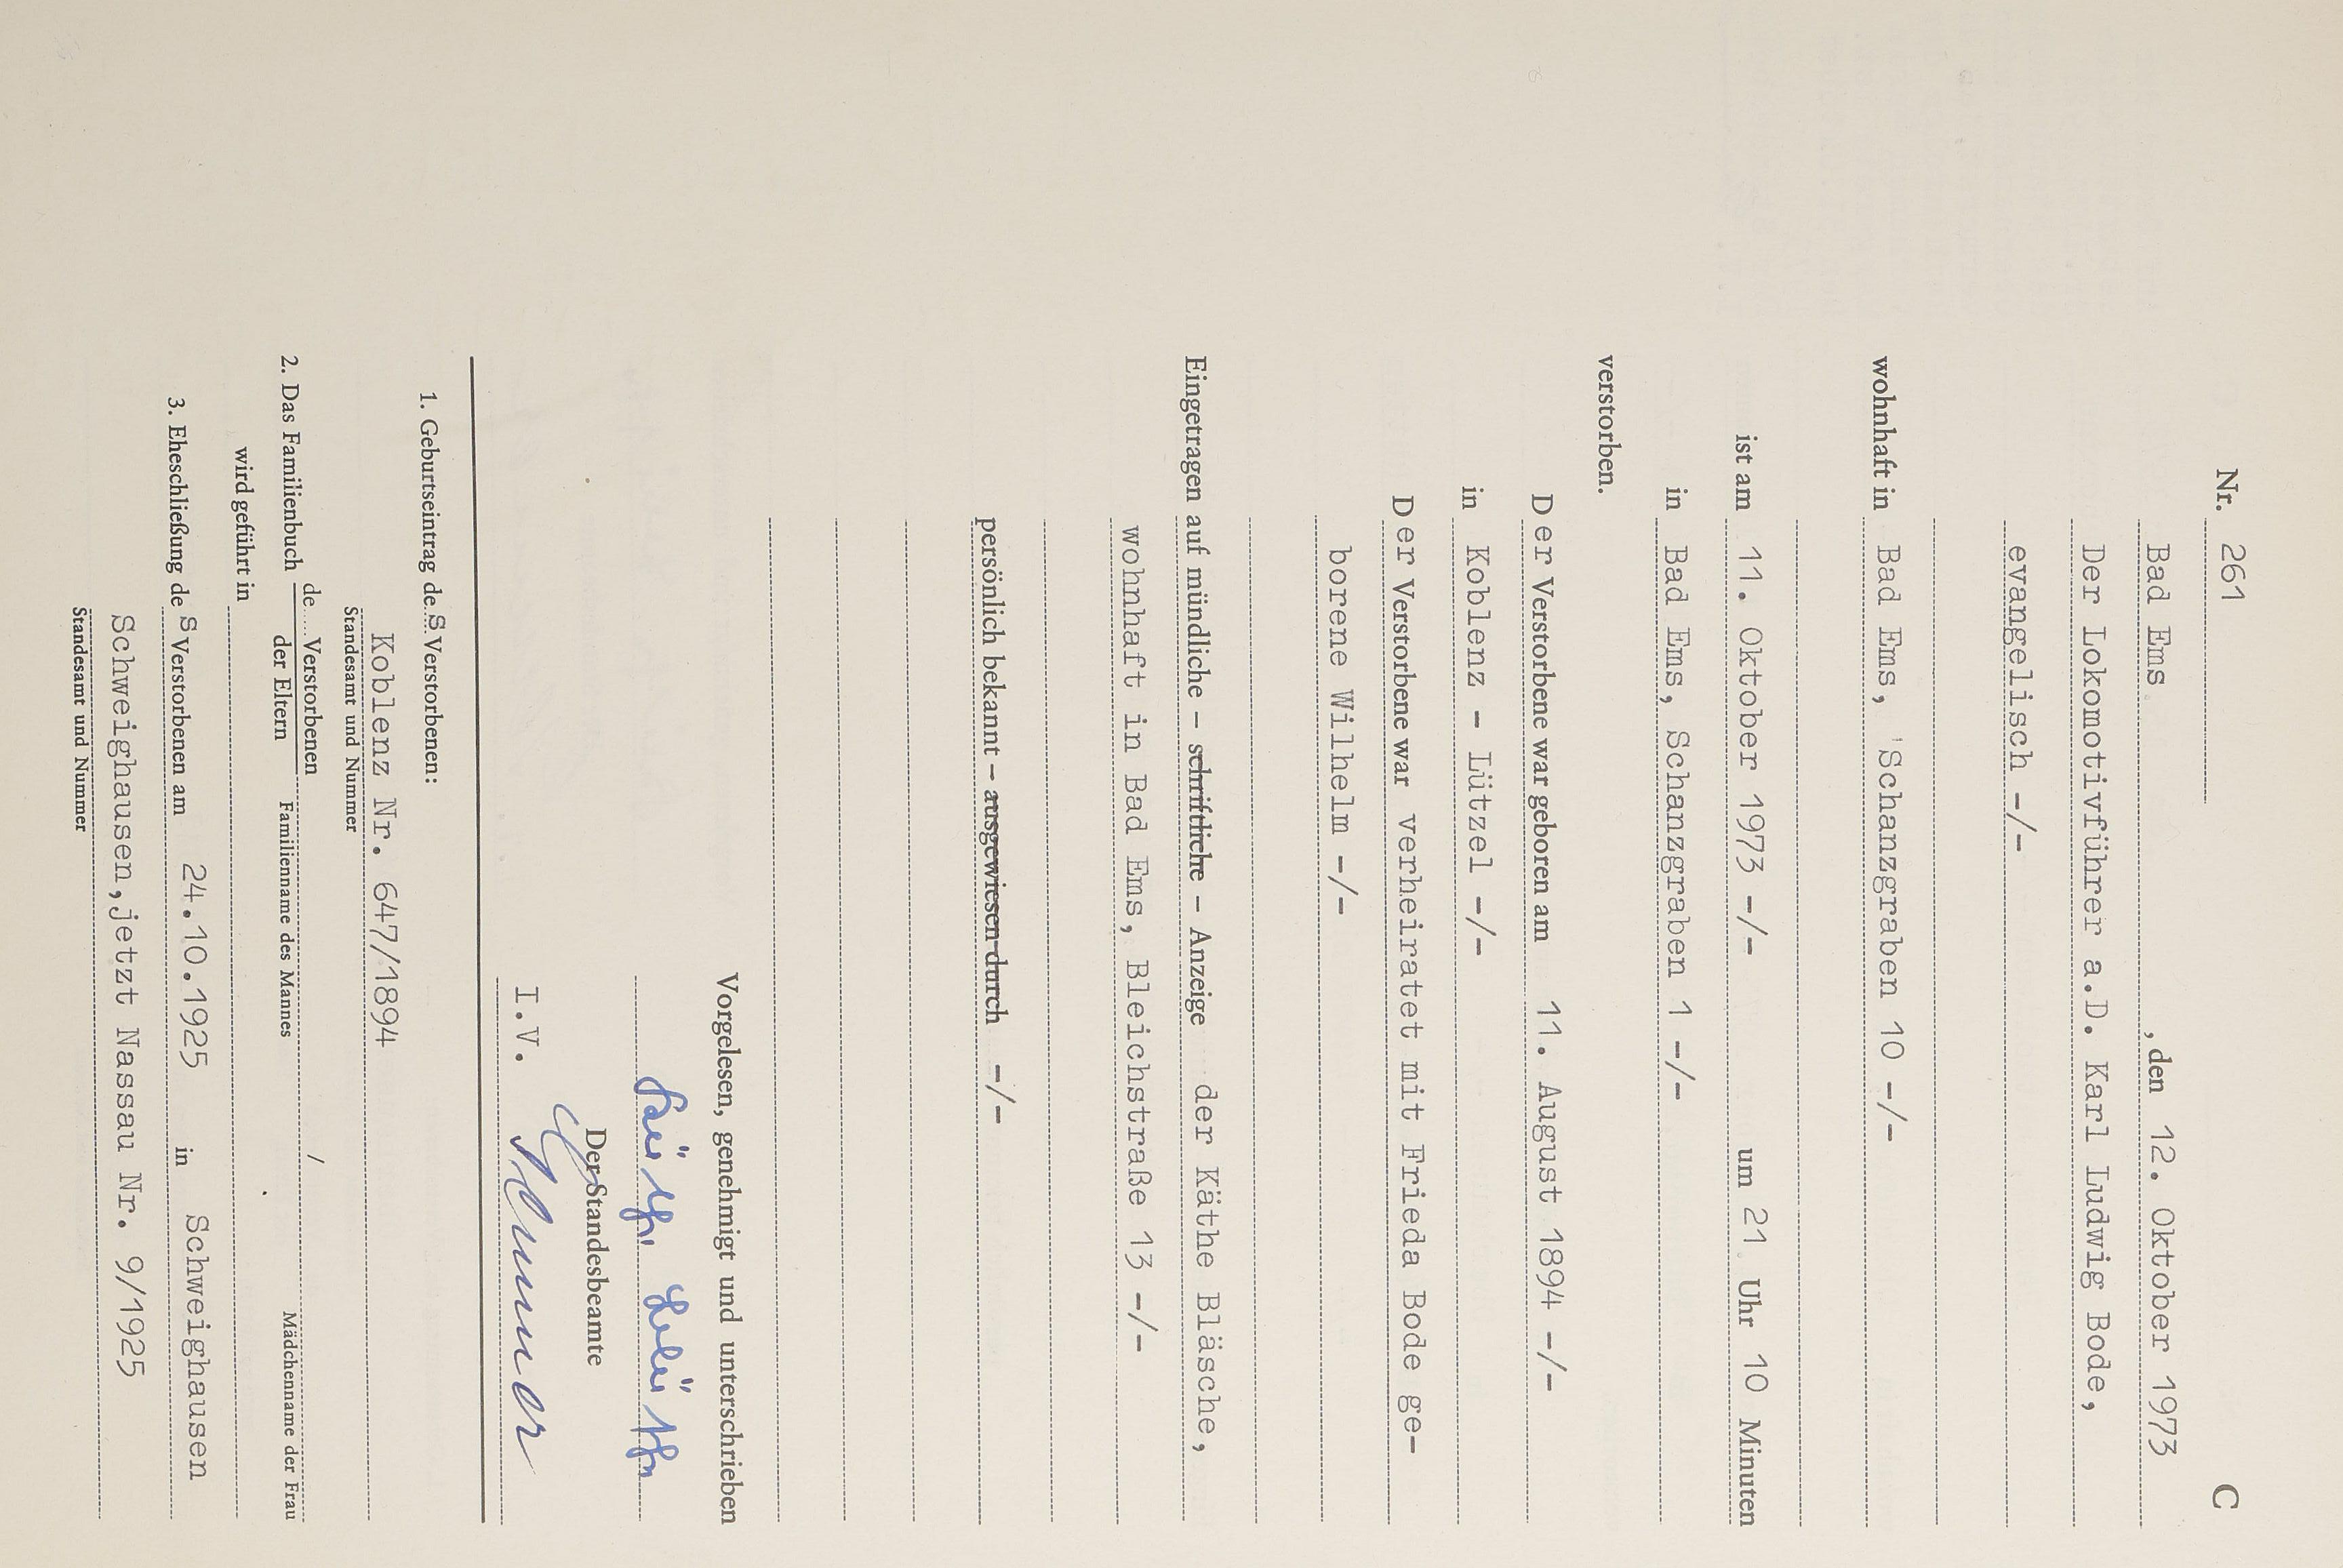 Nr. 261 C
Bad Ems , den 12. Oktober 1973
Der Lokomotivführer a.D. Karl Ludwig Bode,
evangelisch -/-
wohnhaft in Bad Ems, 'Schanzgraben 10 -/-
ist am 11. Oktober 1973 -/- um 21 Uhr 10 Minuten
in Bad Ems, Schanzgraben 1 -/-
verstorben.
Der Verstorbene war geboren am 11. August 1894 -/-
in Koblenz - Lützel -/-
Der Verstorbene war verheiratet mit Frieda Bode ge-
borene Wilhelm -/-
Eingetragen auf mündliche – schriftliche – Anzeige der Käthe Bläsche,
wohnhaft in Bad Ems, Bleichstraße 13 -/-
persönlich bekannt – ausgewiesen durch -/-
Vorgelesen, genehmigt und unterschrieben
Käthe Bläsche
Der Standesbeamte
I.V.
1. Geburtseintrag des Verstorbenen:
Koblenz Nr. 647/1894
Standesamt und Nummer
de.... Verstorbenen /
2. Das Familienbuch
der Eltern Familienname des Mannes Mädchenname der Frau
wird geführt in
3. Eheschließung des Verstorbenen am 24.10.1925 in Schweighausen
Schweighausen,jetzt Nassau Nr. 9/1925
Standesamt und Nummer